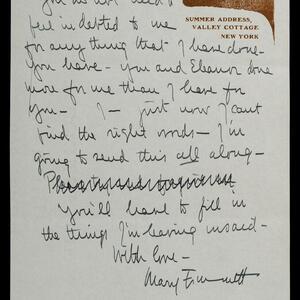 you do not need to
SUMMER ADDRESS,
VALLEY COTTAGE
NEW YORK
feel indebted to me
for any thing that I have done—
You have — you and Eleanor done
more for me than I have for
you — I — just now I can't
find the right words — I'm
going to send this all along —
You'll have to fill in
the things I'm leaving unsaid —
With love —
Mary